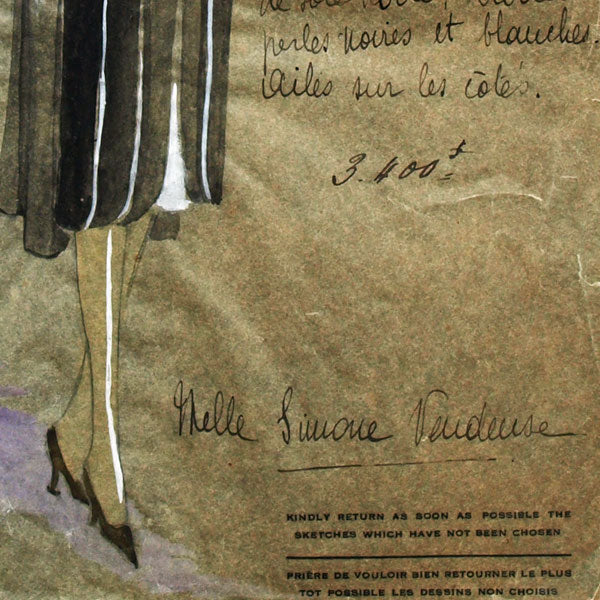 de soie noire, 
perles noires et blanches.
Ailes sur les côtés.
3.400f=
Melle Simone Vendeuse
KINDLY RETURN AS SOON AS POSSIBLE THE
SKETCHES WHICH HAVE NOT BEEN CHOSEN
PRIÈRE DE VOULOIR BIEN RETOURNER LE PLUS
TOT POSSIBLE LES DESSINS NON CHOISIS